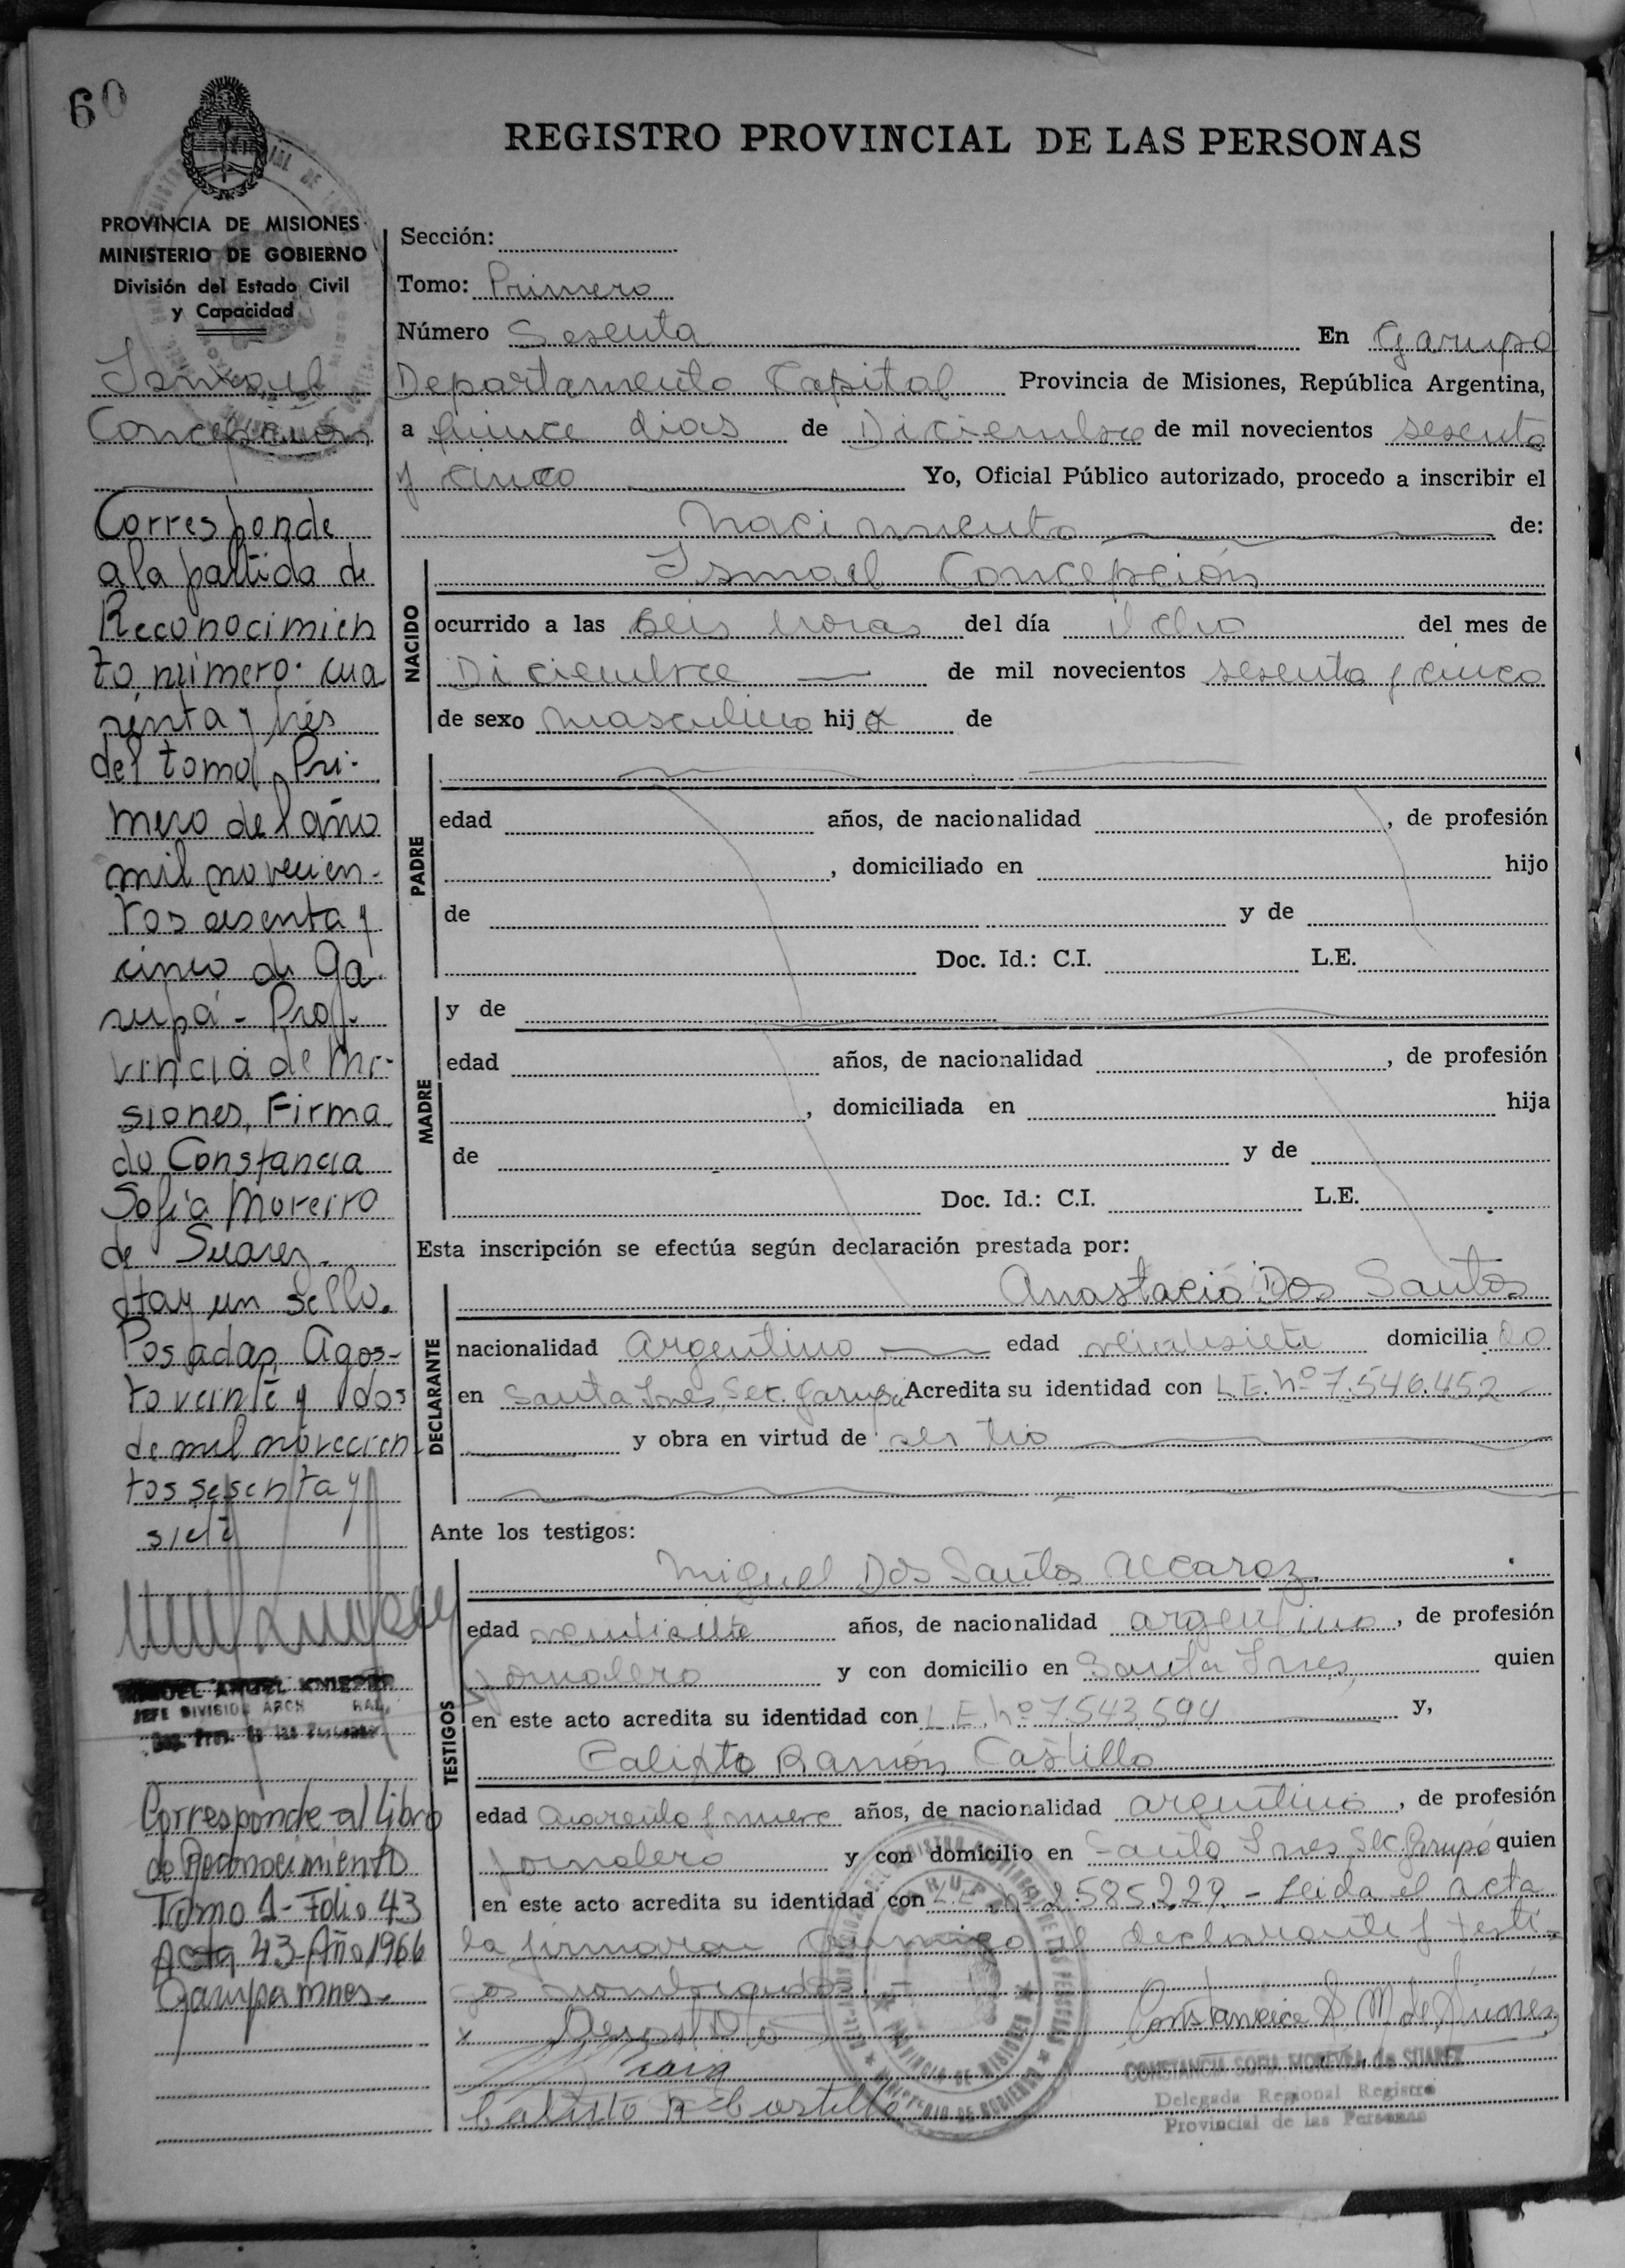 60
REGISTRO PROVINCIAL DE LAS PERSONAS
PROVINCIA DE MISIONES
MINISTERIO DE GOBIERNO
División del Estado Civil
y Capacidad
Ismael
Concepción
Corresponde
a la partida de
Reconocimien
to número cua
renta y tres
del tomo Pri-
mero del año
mil novecien-
tos sesenta y
cinco de Ga
rupá - Pro-
vincia de Mi-
siones, Firma
do Constancia
Sofía Moreira
de Suarez.
Hay un sello.
Posadas, Agos-
to veinte y dos
de mil novecien
tos sesenta y
siete
MIGUEL ANGEL KNIEPER
JEFE DIVISION ARCH RAL.
Reg. Prov. de las Personas
Corresponde al Libro
de Reconocimiento
Tomo 1 - Folio 43
Acta 43 - Año 1966
Garupa mnes.
Sección:
Tomo: Primero
Número Sesenta En Garupá
Departamento Capital Provincia de Misiones, República Argentina,
a quince dias de Diciembre de mil novecientos sesenta
y cinco Yo, Oficial Público autorizado, procedo a inscribir el
nacimiento de:
NACIDO
Ismael Concepción
ocurrido a las seis horas del día ocho del mes de
Diciembre de mil novecientos sesenta y cinco
de sexo masculino hijo de
PADRE
edad años, de nacionalidad , de profesión
, domiciliado en hijo
de y de
Doc. Id.: C.I. L.E.
MADRE
y de
edad años, de nacionalidad , de profesión
, domiciliada en hija
de y de
Doc. Id.: C.I. L.E.
Esta inscripción se efectúa según declaración prestada por:
DECLARANTE
Anastacio Dos Santos
nacionalidad Argentino edad veintisiete domiciliado
en Santa Ines, Sec. Garupá Acredita su identidad con L.E. Nº 7.540.452
y obra en virtud de ser tio
Ante los testigos:
TESTIGOS
Miguel Dos Santos Alcaraz.
edad años, de nacionalidad argentino, de profesión
jornalero y con domicilio en Santa Ines, quien
en este acto acredita su identidad con L.E. Nº 7.543.594 y,
Calixto Ramón Castillo
edad cuarenta y nueve años, de nacionalidad argentino, de profesión
jornalero y con domicilio en Santa Ines, Sec. Garupá quien
en este acto acredita su identidad con L.E. Nº 2.585.229. - Leida el acta
la firmaran conmigo el declarante y testi-
gos nombrados. -
Constancia S M de Suarez
Calixto R Castillo
CONSTANCIA SOFIA MOREYRA de SUAREZ
Delegada Regional Registro
Provincial de las Personas